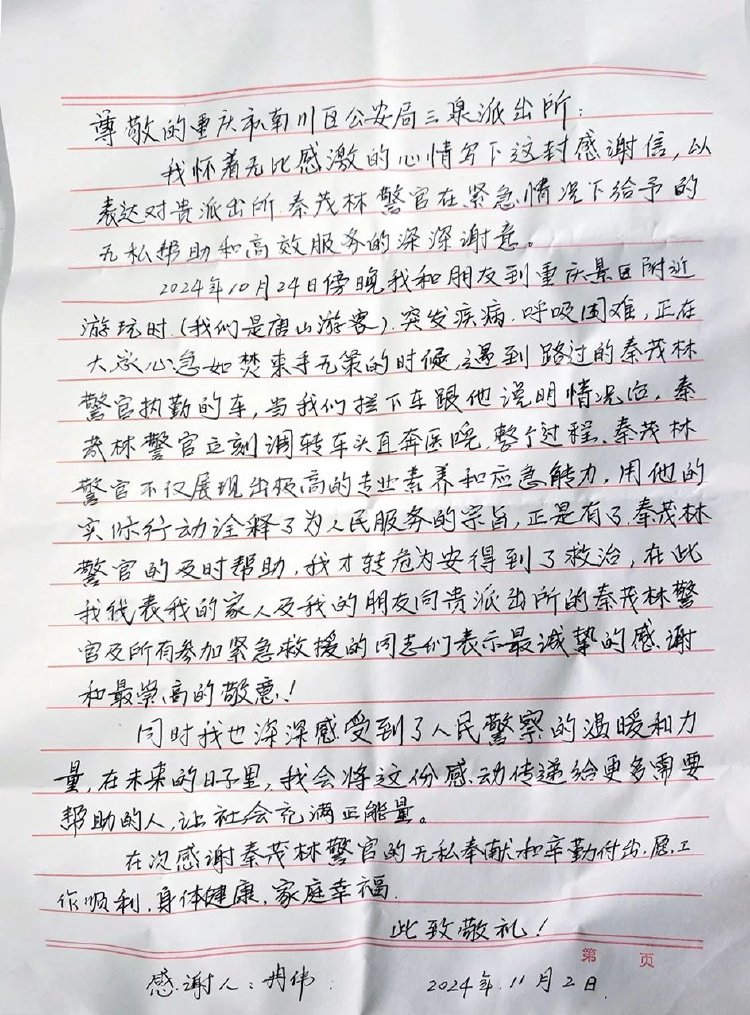 尊敬的重庆市南川区公安局三泉派出所：
我怀着无比感激的心情写下这封感谢信，以
表达对贵派出所秦茂林警官在紧急情况下给予的
无私帮助和高效服务的深深谢意。
2024年10月24日傍晚我和朋友到重庆景区附近
游玩时（我们是唐山游客）.突发疾病.呼吸困难，正在
大家心急如焚束手无策的时候，遇到路过的秦茂林
警官执勤的车，当我们拦下车跟他说明情况后，秦
茂林警官立刻调转车头直奔医院，整个过程、秦茂林
警官不仅展现出极高的专业素养和应急能力，用他的
实际行动诠释了为人民服务的宗旨，正是有了秦茂林
警官的及时帮助，我才转危为安得到了救治，在此
我代表我的家人及我的朋友向贵派出所的秦茂林警
官及所有参加紧急救援的同志们表示最诚挚的感谢
和最崇高的敬意！
同时我也深深感受到了人民警察的温暖和力
量，在未来的日子里，我会将这份感动传递给更多需要
帮助的人，让社会充满正能量。
在次感谢秦茂林警官的无私奉献和辛勤付出.愿工
作顺利.身体健康，家庭幸福.
此致敬礼！
第 页
感谢人：冉伟 2024年.11月2日